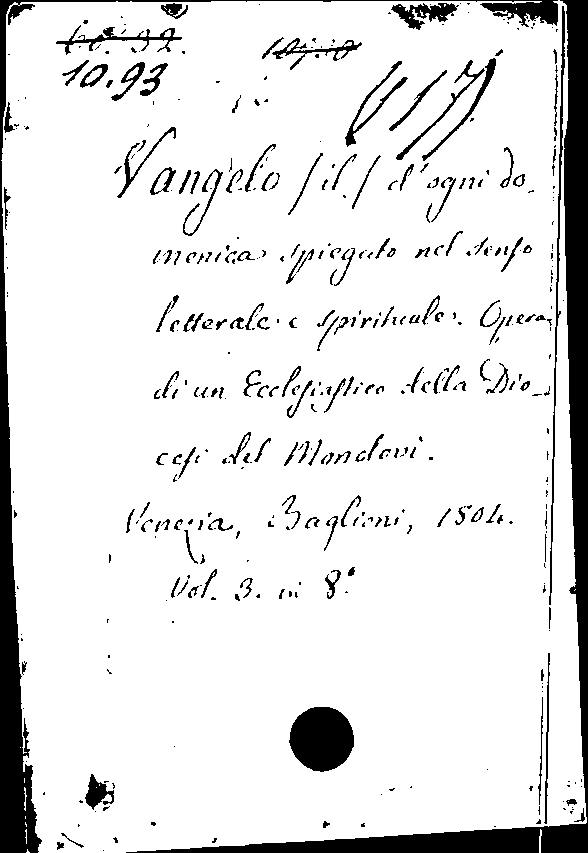 10.93
Vangelo /il/ d'ogni do-
menica spiegato nel senso
letterale e spirituale. Opera
di un Ecclesiastico della Dio-
cesi del Mondovi.
Venezia, Baglioni, 1804.
Vol. 3. in 8.°